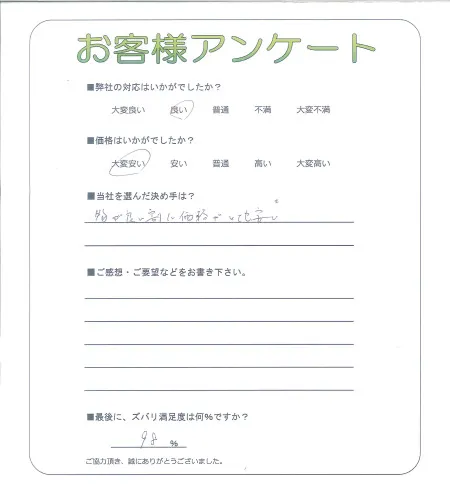 お客様アンケート
■弊社の対応はいかがでしたか？
大変良い 良い 普通 不満 大変不満
■価格はいかがでしたか？
大変安い 安い 普通 高い 大変高い
■当社を選んだ決め手は？
質が良い割に価格がとても安い
■ご感想・ご要望などをお書き下さい。
■最後に、ズバリ満足度は何%ですか？
98 %
ご協力頂き、誠にありがとうございました。